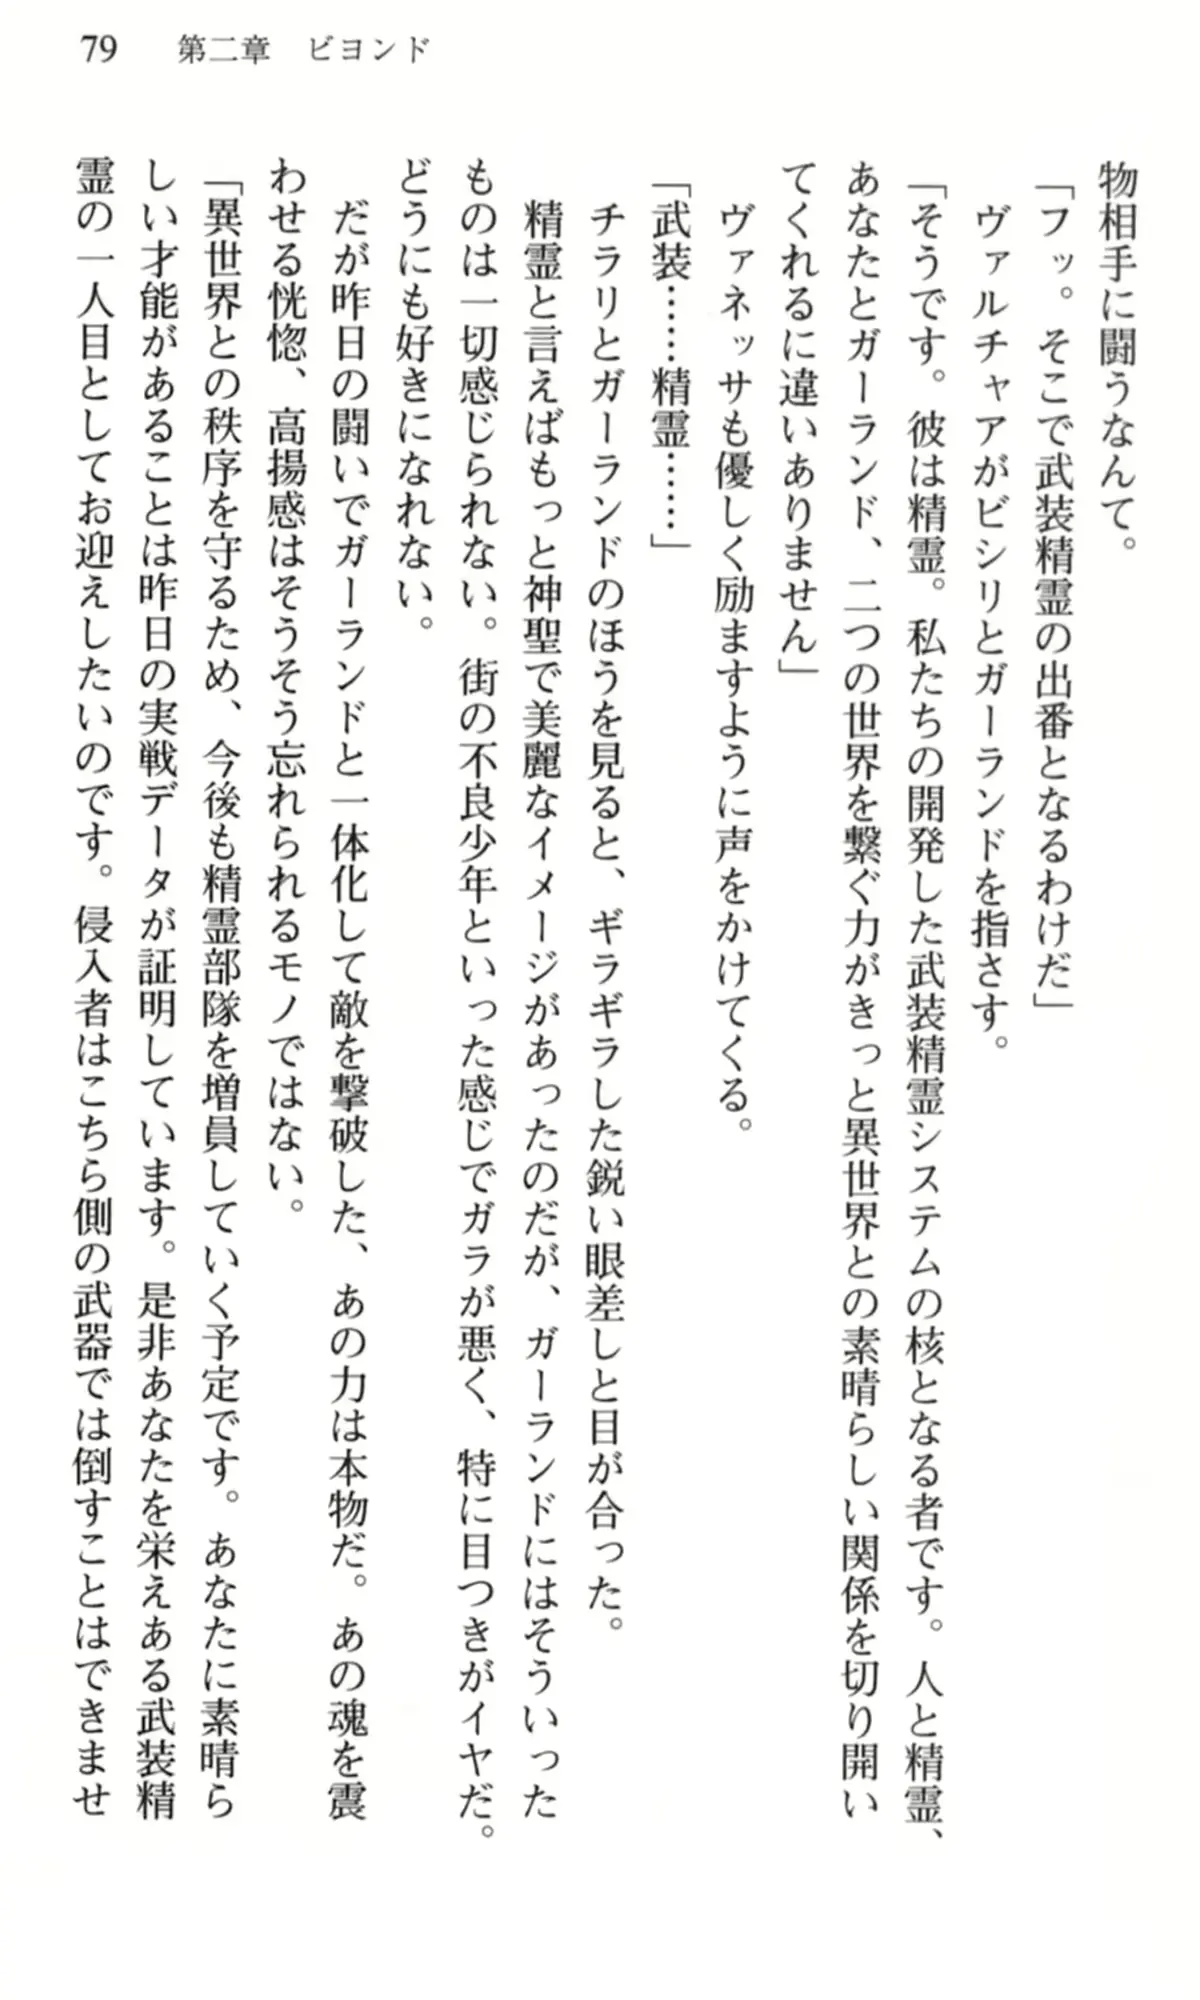 79　第二章　ビヨンド
物相手に闘うなんて。
「フッ。そこで武装精霊の出番となるわけだ」
　ヴァルチャアがビシリとガーランドを指さす。
「そうです。彼は精霊。私たちの開発した武装精霊システムの核となる者です。人と精霊、
あなたとガーランド、二つの世界を繋ぐ力がきっと異世界との素晴らしい関係を切り開い
てくれるに違いありません」
　ヴァネッサも優しく励ますように声をかけてくる。
「武装……精霊……」
　チラリとガーランドのほうを見ると、ギラギラした鋭い眼差しと目が合った。
　精霊と言えばもっと神聖で美麗なイメージがあったのだが、ガーランドにはそういった
ものは一切感じられない。街の不良少年といった感じでガラが悪く、特に目つきがイヤだ。
どうにも好きになれない。
　だが昨日の闘いでガーランドと一体化して敵を撃破した、あの力は本物だ。あの魂を震
わせる恍惚、高揚感はそうそう忘れられるモノではない。
「異世界との秩序を守るため、今後も精霊部隊を増員していく予定です。あなたに素晴ら
しい才能があることは昨日の実戦データが証明しています。是非あなたを栄えある武装精
霊の一人目としてお迎えしたいのです。侵入者はこちら側の武器では倒すことはできませ